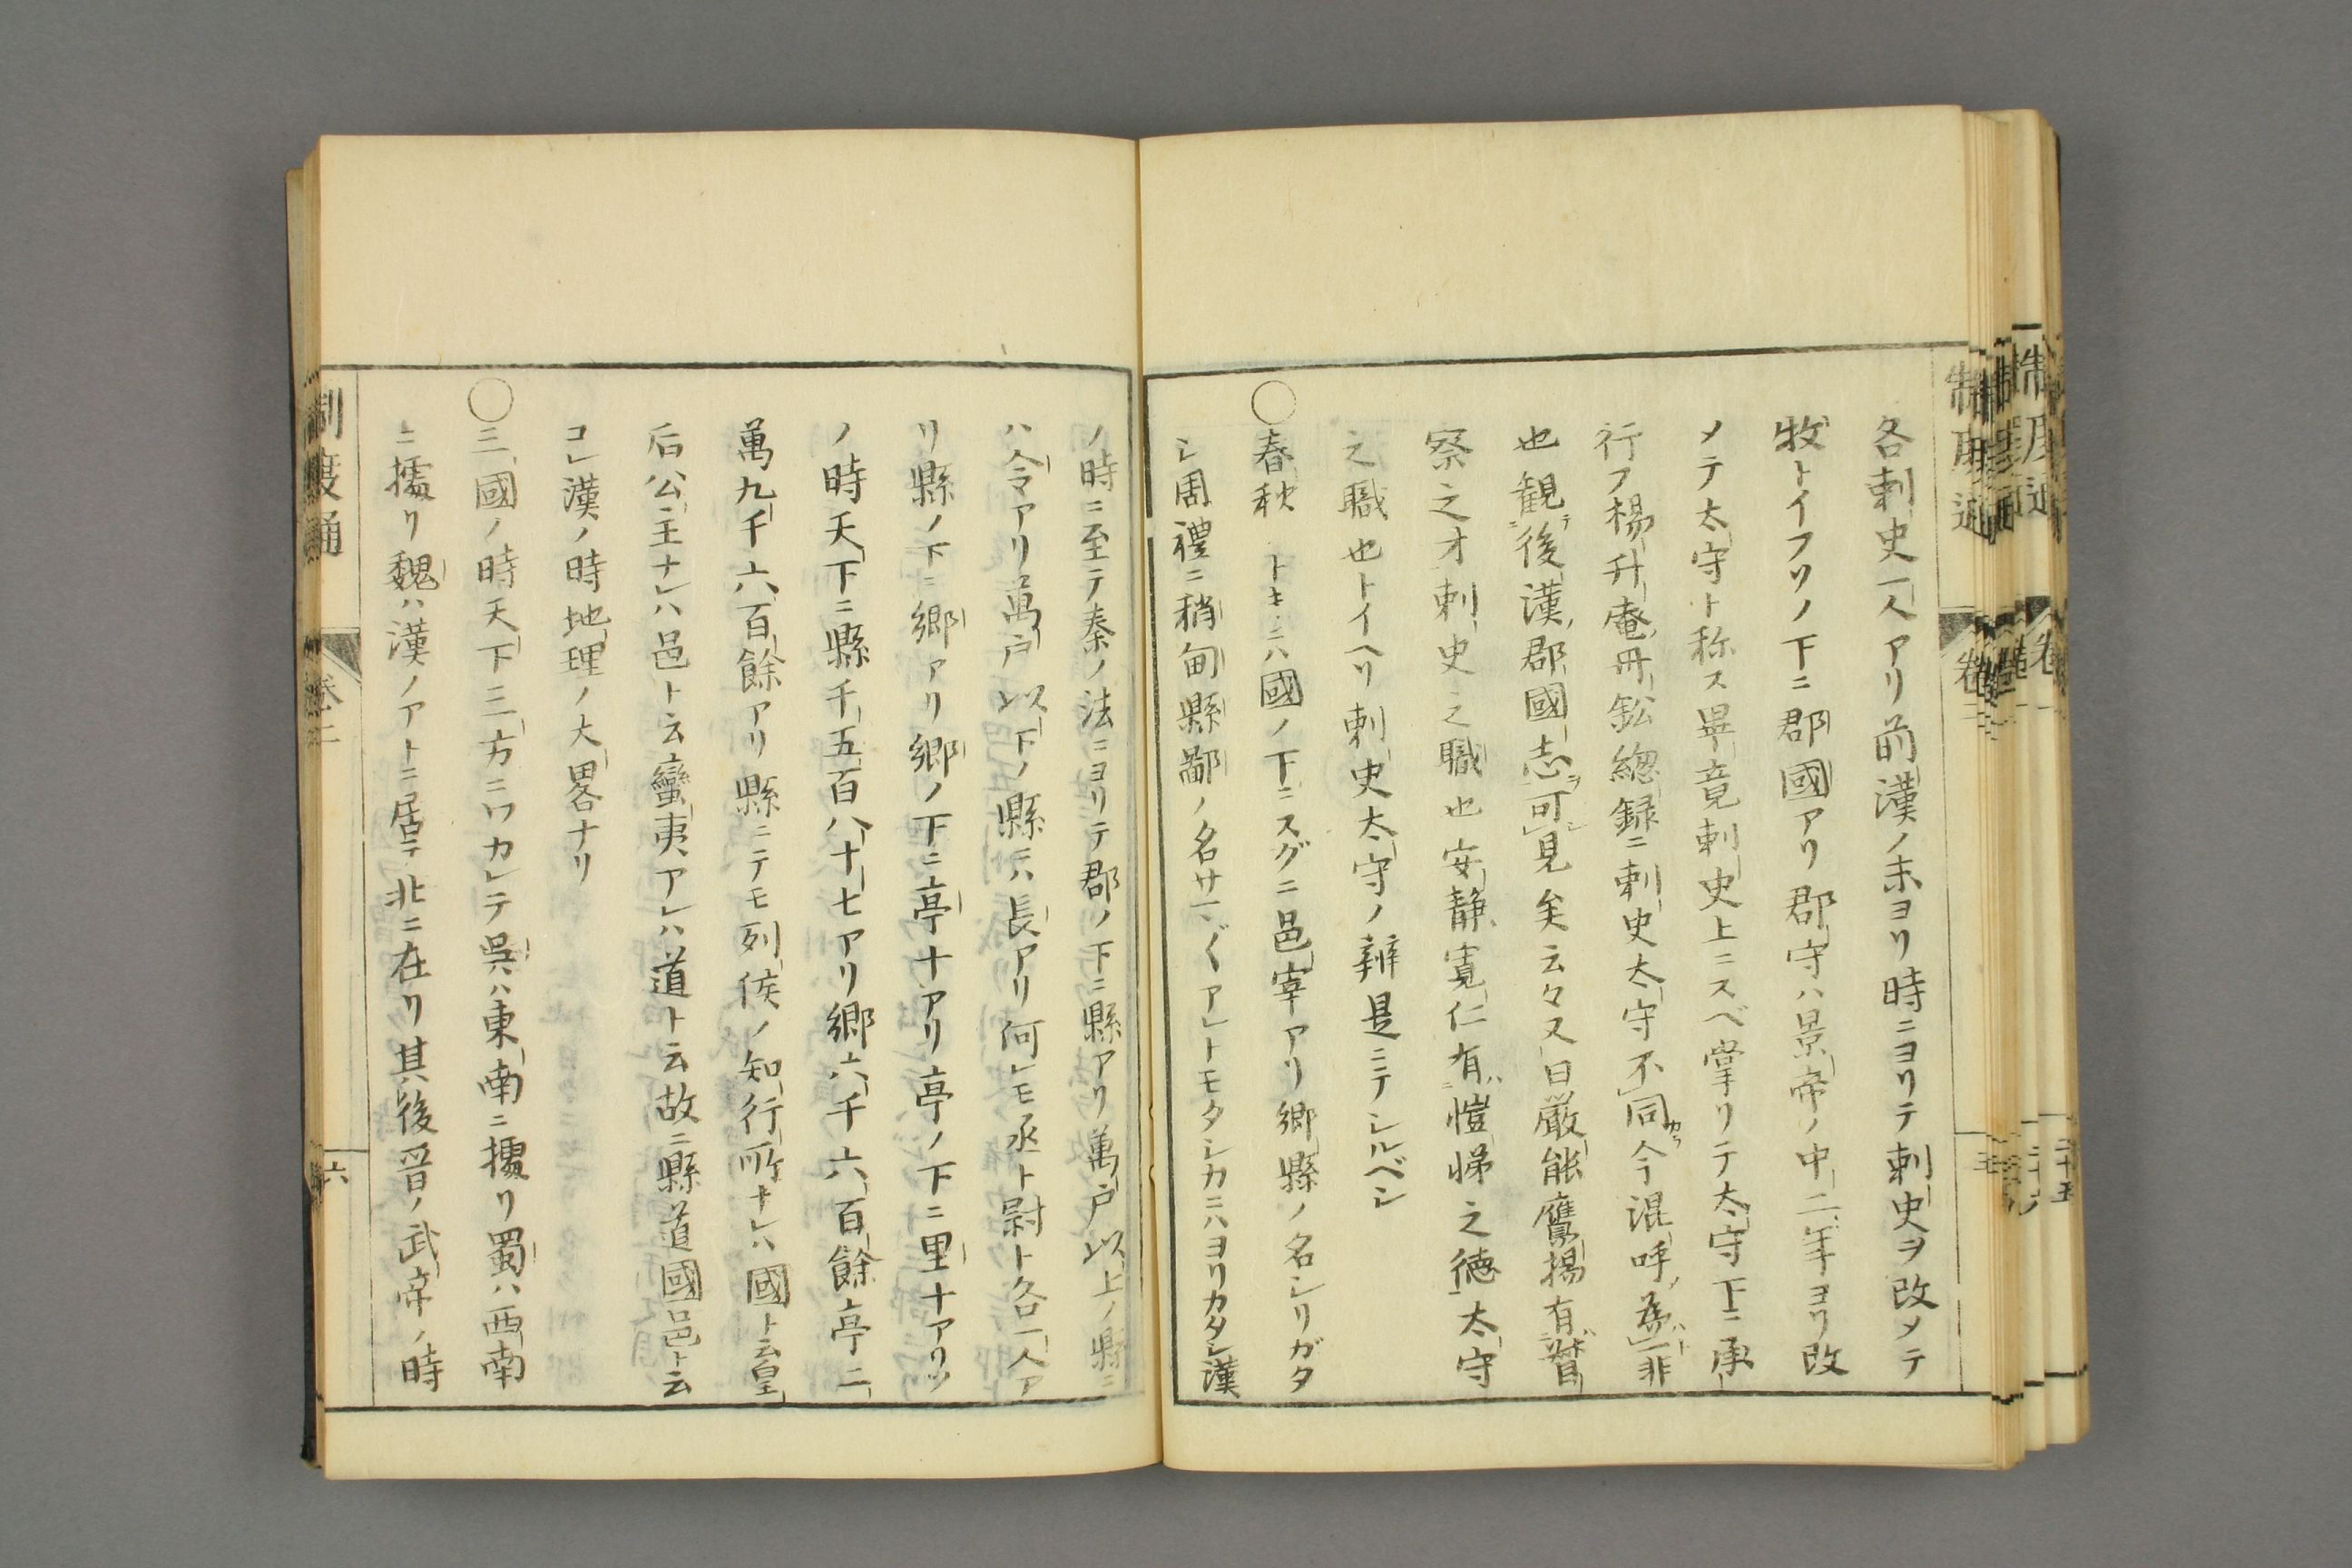 各刺史一人アリ前漢ノ末ヨリ時ニヨリテ刺史ヲ改メテ
牧トイフソノ下ニ郡國アリ郡守ハ景帝ノ中二年ヨリ改
メテ太守ト称ス畢竟刺史上ニスベ掌リテ太守下ニ承
行フ楊升庵丹鉛總録ニ刺史太守不同今混呼爲一非
也観後漢郡國志可見矣云々又曰厳能鷹揚有督
察之才刺史之職也安静寛仁有愷悌之徳太守
之職也トイヘリ刺史太守ノ辨是ニテシルベシ
○春秋トキニハ國ノ下ニスグニ邑宰アリ郷縣ノ名シリガタ
シ周禮ニ稍甸縣鄙ノ名サマ〲アレトモタシカニハヨリカタシ漢
ノ時ニ至テ秦ノ法ニヨリテ郡ノ下ニ縣アリ萬戸以上ノ縣ニ
ハ令アリ萬戸以下ノ縣ニハ長アリ何レモ丞ト尉ト各一人ア
リ縣ノ下ニ郷アリ郷ノ下ニ亭十アリ亭ノ下ニ里十アリソ
ノ時天下ニ縣千五百八十七アリ郷六千六百餘亭二
萬九千六百餘アリ縣ニテモ列侯ノ知行所ナレハ國ト云皇
后公主ナレハ邑ト云蠻夷アレハ道ト云故ニ縣道國邑ト云
コレ漢ノ時地理ノ大畧ナリ
○三國ノ時天下三方ニワカレテ呉ハ東南ニ據リ蜀ハ西南
ニ據リ魏ハ漢ノアトニ居テ北ニ在リ其後晉ノ武帝ノ時
制度通 巻二 六